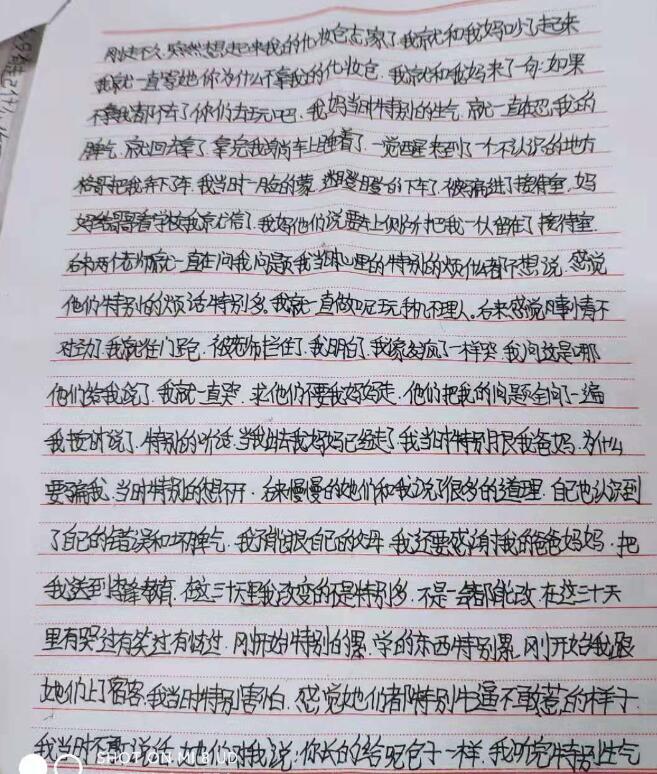 刚走不久突然想起来我的化妆包忘家了我就和我妈吵了起来
我就一直害她你为什么不拿我的化妆包.我就和我妈来了句:如果
不拿我都不去了你们去玩吧.我妈当时特别的生气.就一直在忍我的
脾气.就回去拿了拿完我躺车上睡着了.一觉醒来到了一个不认识的地方
哥把我弄下了车.我当时一脸的蒙.迷迷登登的下车了被骗进了接待室.妈
妈给哥哥看学校我就信了.我妈他们说要去上厕所把我一个人留在了接待室.
后来两个老师就一直在问我问题我当时心里的特别的烦什么都不想说.感觉
他们特别的烦话特别多.我就一直做呢玩手机不理人.后来感觉事情不
对劲了我就往门跑.被老师拦住了.我明白了我像发疯了一样哭.我问这是哪
他们给我说了.我就一直哭.求他们不要我妈妈走.他们把我的问题全问了一遍
我按时说了.特别的听话.当我出去我妈妈已经走了我当时特别恨我爸妈.为什么
要骗我.当时特别的想不开.后来慢慢的她们和我说了很多的道理.自己也认识到
了自己的错误和坏脾气.我不能恨自己的父母.我还要感谢我的爸爸妈妈.把
我送到 教育.在这三十天里我改变的不是特别多.不是一 都能改.在这三十天
里有哭过有笑过有 过.刚开始特别的累.学的东西特别累.刚开始我跟
她们上了宿舍.我当时特别害怕.感觉她们都特别牛逼不敢惹的样子.
我当时不敢说话.她们对我说:你长的给呢包子一样.我听完特别生气
SHOT ON MI 8 UD